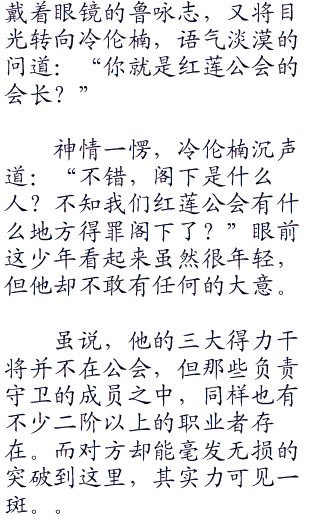 戴着眼镜的鲁咏志，又将目
光转向冷伦楠，语气淡漠的
问道：“你就是红莲公会的
会长？”
神情一愣，冷伦楠沉声
道：“不错，阁下是什么
人？不知我们红莲公会有什
么地方得罪阁下了？”眼前
这少年看起来虽然很年轻，
但他却不敢有任何的大意。
虽说，他的三大得力干
将并不在公会，但那些负责
守卫的成员之中，同样也有
不少二阶以上的职业者存
在。而对方却能毫发无损的
突破到这里，其实力可见一
斑。。